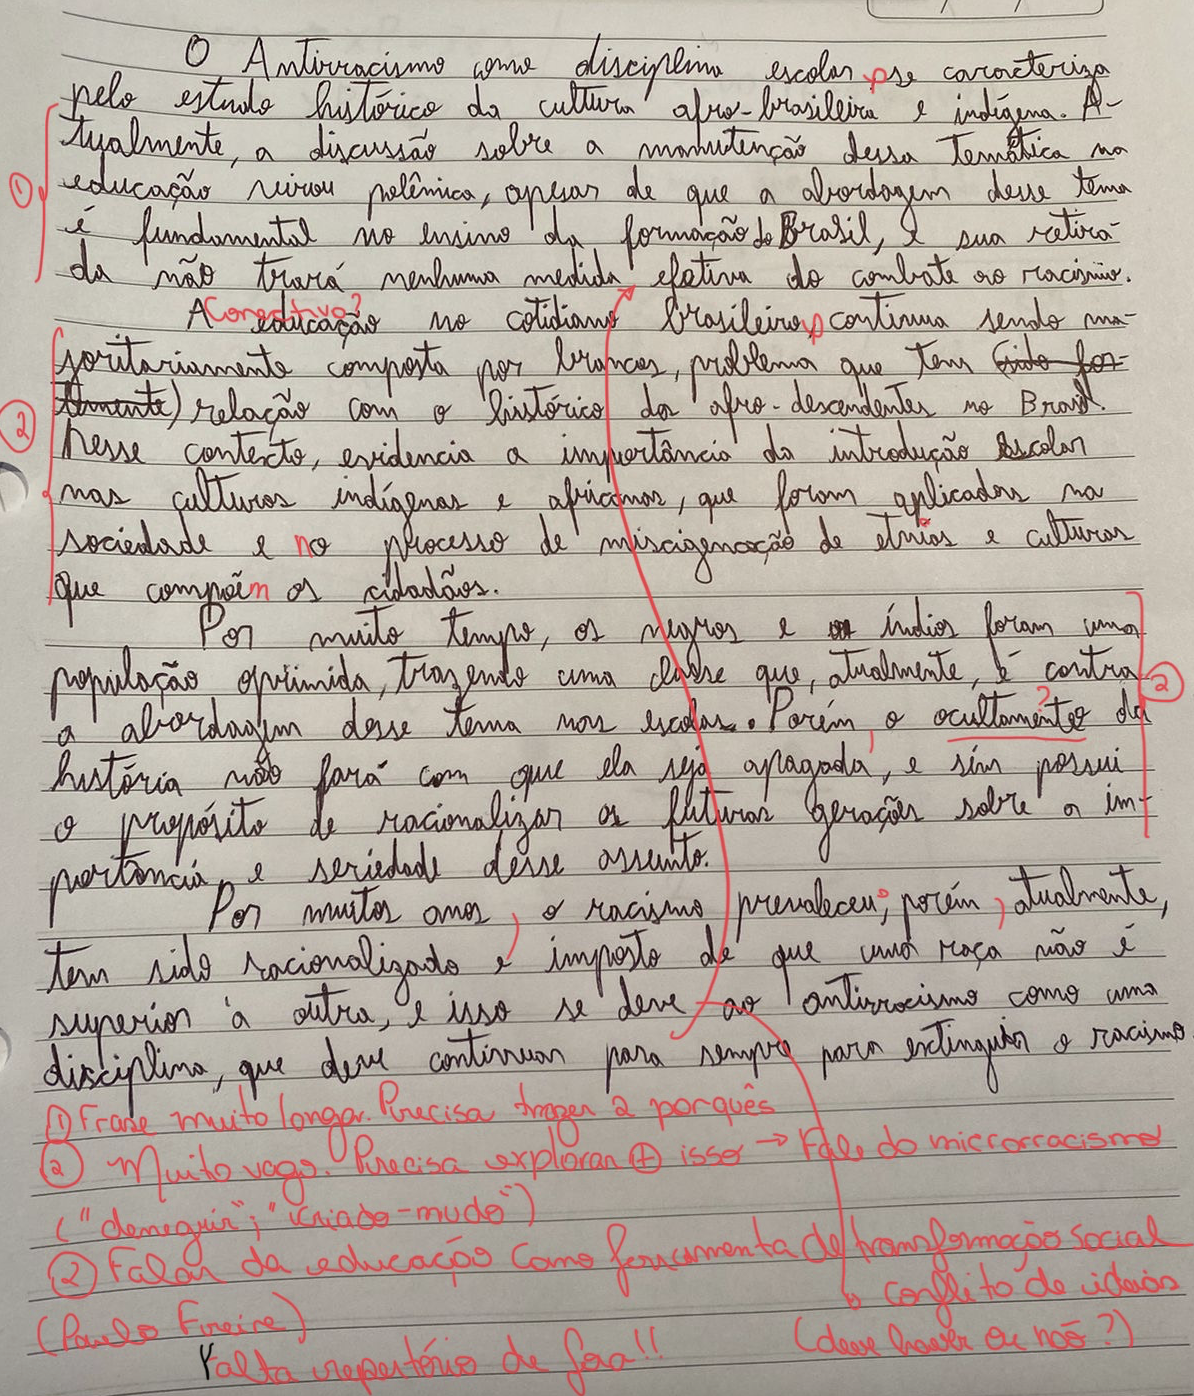 O Antirracismo como disciplina escolar se caracteriza
pelo estudo histórico da cultura afro-brasileira e indígena. A-
tualmente, a discussão sobre a manutenção dessa temática na
① educação virou polêmica, apesar de que a abordagem desse tema
é fundamental no ensino da formação do Brasil, e sua retira-
da não trará nenhuma medida efetiva do combate ao racismo.
Conectivo?
A educação no cotidiano brasileiro, continua sendo ma-
joritariamente composta por brancos, problema que tem (sido for-
temente) relação com o histórico da afro-descendentes no Brasil.
② Nesse contexto, evidencia a importância da introdução escolar
nas culturas indígenas e africanas, que foram aplicadas na
sociedade e no processo de miscigenação de etnias e culturas
que compõem os cidadãos.
Por muito tempo, os negros e índios foram uma
população oprimida, trazendo uma classe que, atualmente, é contra ②
a abordagem desse tema nas escolas. Porém, o ocultamento da ?
história não fará com que ela seja apagada, e sim possui
o propósito de racionalizar as futuras gerações sobre a im-
portância e seriedade desse assunto.
Por muitos anos, o racismo prevaleceu; porém, atualmente,
tem sido racionalizado e imposto de que uma raça não é
superior à outra, e isso se deve ao antirracismo como uma
disciplina, que deve continuar para sempre para extinguir o racismo.
① Frase muito longa. Precisa trazer 2 porquês
② Muito vago. Precisa explorar + isso → Fale do microrracismo
("denegrir"; "criado-mudo")
② Falar da educação como ferramenta de transformação social
conflito de ideias
(Paulo Freire)
(deve haver ou não?)
Falta repertório de fora!!